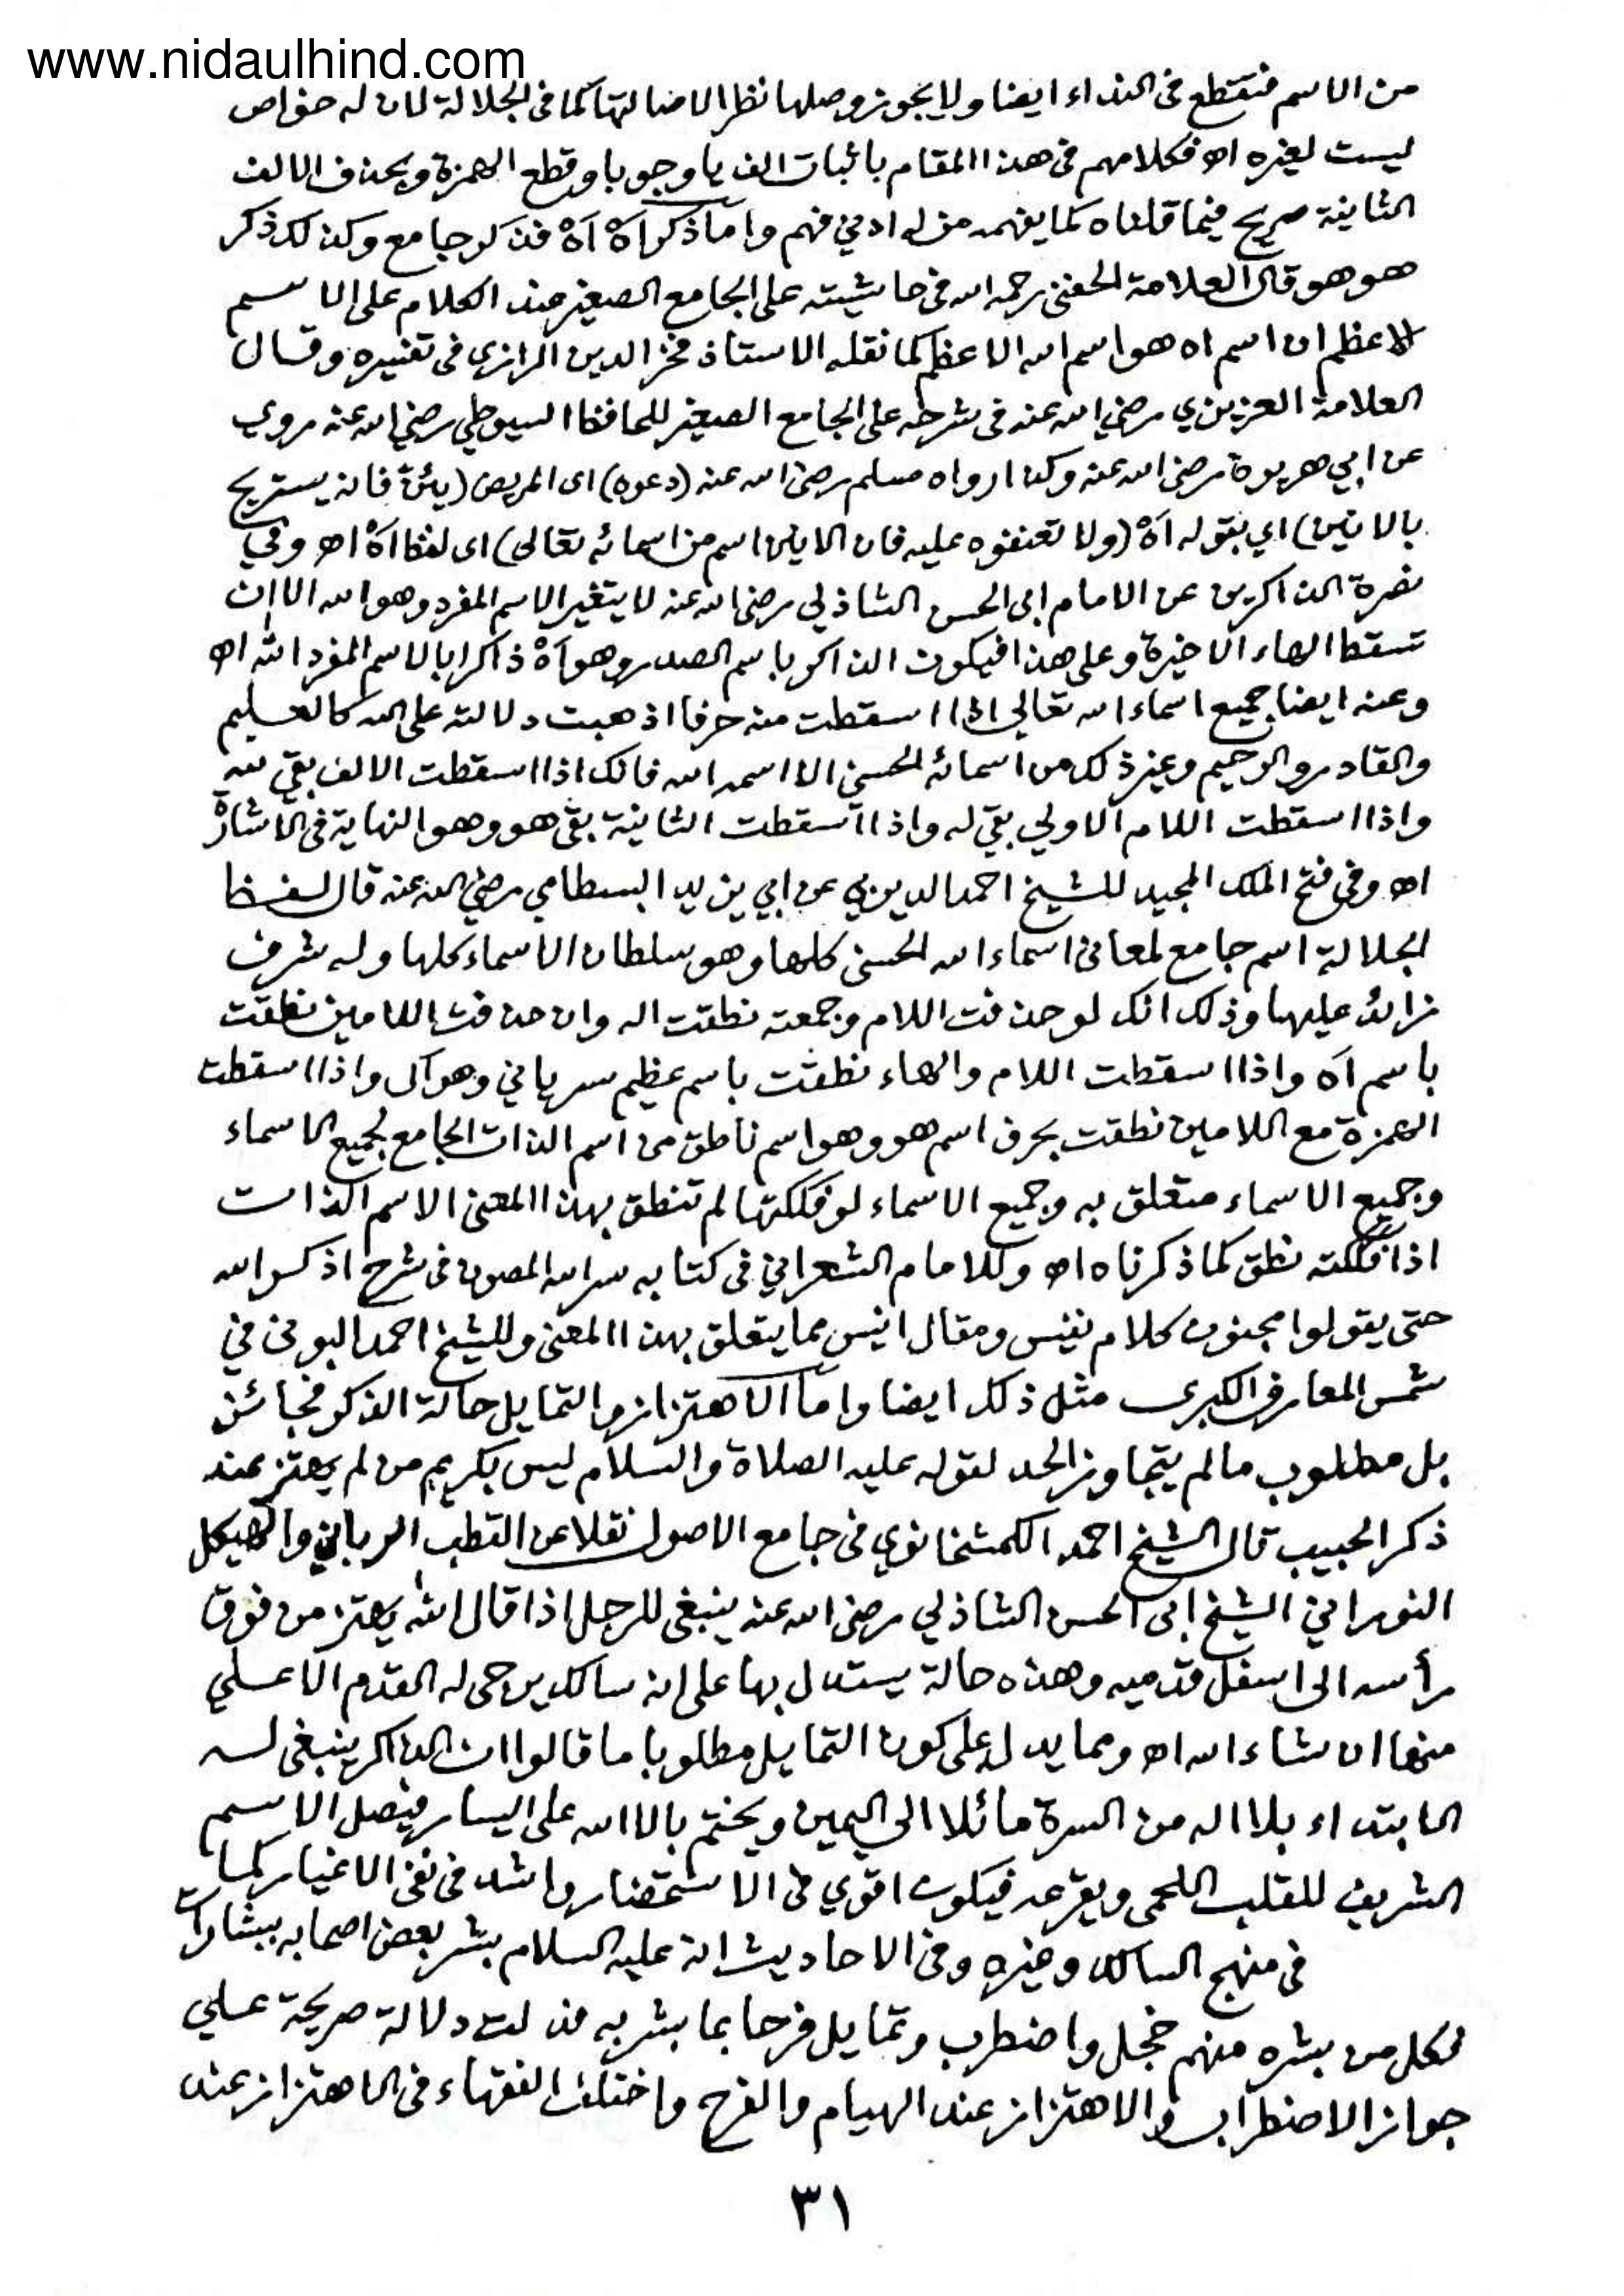 www.nidaulhind.com
من الاسم فتقطع فى النداء ايضا ولا يجوز وصلها نظرا لاصالتها كما فى الجلالة لان له خواص
ليست لغيره اه فكلامهم فى هذا المقام باثبات الف يا وجوبا وقطع الهمزة وبحذف الالف
الثانية صريح فيما قلناه كما يفهمه من له ادني فهم واما ذكر اٰهْ اٰهْ فذكر جامع وكذلك ذكر
هو هو قال العلامة الحفنى رحمه الله فى حاشيته على الجامع الصغير عند الكلام على الاسم
الاعظم ان اسم اه هو اسم الله الاعظم كما نقله الاستاذ فخر الدين الرازى فى تفسيره وقال
العلامة العزيزي رضي الله عنه فى شرحه على الجامع الصغير للحافظ السيوطي رضي الله عنه روي
عن ابي هريرة رضى الله عنه وكذا رواه مسلم رضى الله عنه (دعوه) اى المريض (يئنّ فانه يستريح
بالانين) اي بقوله اٰهْ (ولا تعنفوه عليه فان الانين اسم من اسمائه تعالى) اى لفظ اٰهْ اه وفي
نصرة الذاكرين عن الامام ابى الحسن الشاذلي رضى الله عنه لا يتغير الاسم المفرد وهو الله الا ان
تسقط الهاء الاخيرة وعلى هذا فيكون الذاكر باسم الصدر وهو اٰهْ ذاكرا بالاسم المفرد الله اه
وعنه ايضا جميع اسماء الله تعالى اذا اسقطت منه حرفا اذهبت دلالته على الله كالعليم
والقادر والرحيم وغير ذلك من اسمائه الحسنى الا اسمه الله فانك اذا اسقطت الالف بقي لله
واذا اسقطت اللام الاولي بقي له واذا اسقطت الثانية بقى هو وهو النهاية فى الاشارة
اه وفى فتح الملك المجيد للشيخ احمد الديربي عن ابي يزيد البسطامي رضي الله عنه قال لفظ
الجلالة اسم جامع لمعانى اسماء الله الحسنى كلها وهو سلطان الاسماء كلها وله شرف
زائد عليها وذلك انك لو حذفت اللام وجمعته نطقت اله وان حذفت اللامين نطقت
باسم اٰه واذا اسقطت اللام والهاء نطقت باسم عظيم سرياني وهو آل واذا اسقطت
الهمزة مع اللامين نطقت بحرف اسم هو وهو اسم ناطق من اسم الذات الجامع لجميع الاسماء
وجميع الاسماء متعلق به وجميع الاسماء لو فككتها لم تنطق بهذا المعنى الا اسم الذات
اذا فككته نطق كما ذكرناه اه وللامام الشعراني فى كتابه سر الله المصون فى شرح اذكروا الله
حتى يقولوا مجنون كلام نفيس ومقال انيس مما يتعلق بهذا المعنى وللشيخ احمد البونى في
شمس المعارف الكبرى مثل ذلك ايضا واما الاهتزاز والتمايل حالة الذكر فجائز
بل مطلوب ما لم يتجاوز الحد لقوله عليه الصلاة والسلام ليس بكريم من لم يهتز عند
ذكر الحبيب قال الشيخ احمد الكمشخانوي فى جامع الاصول نقلا عن القطب الرباني والهيكل
النوراني الشيخ ابى الحسن الشاذلي رضى الله عنه ينبغى للرجل اذا قال الله يهتز من فوق
رأسه الى اسفل قدميه وهذه حالة يستدل بها على انه سالك يرجى له القدم الاعلي
منها ان شاء الله اه ومما يدل على كون التمايل مطلوبا ما قالوا ان الذاكر ينبغى له
الابتداء بلا اله من السرة مائلا الي اليمين ويختم بالا الله على اليسار فيصل الاسم
الشريف للقلب اللحمى ويقرعه فيكون اقوي فى الاستحضار واشد فى نفى الاغيار كما
فى منهج السالك وغيره وفى الاحاديث انه عليه السلام بشر بعض اصحابه ببشارات
فكل من بشره منهم خجل واضطرب وتمايل فرحا بما بشر به فدلت دلالة صريحة علي
جواز الاضطراب والاهتزاز عند الهيام والفرح واختلف الفقهاء فى الاهتزاز عند
٣١